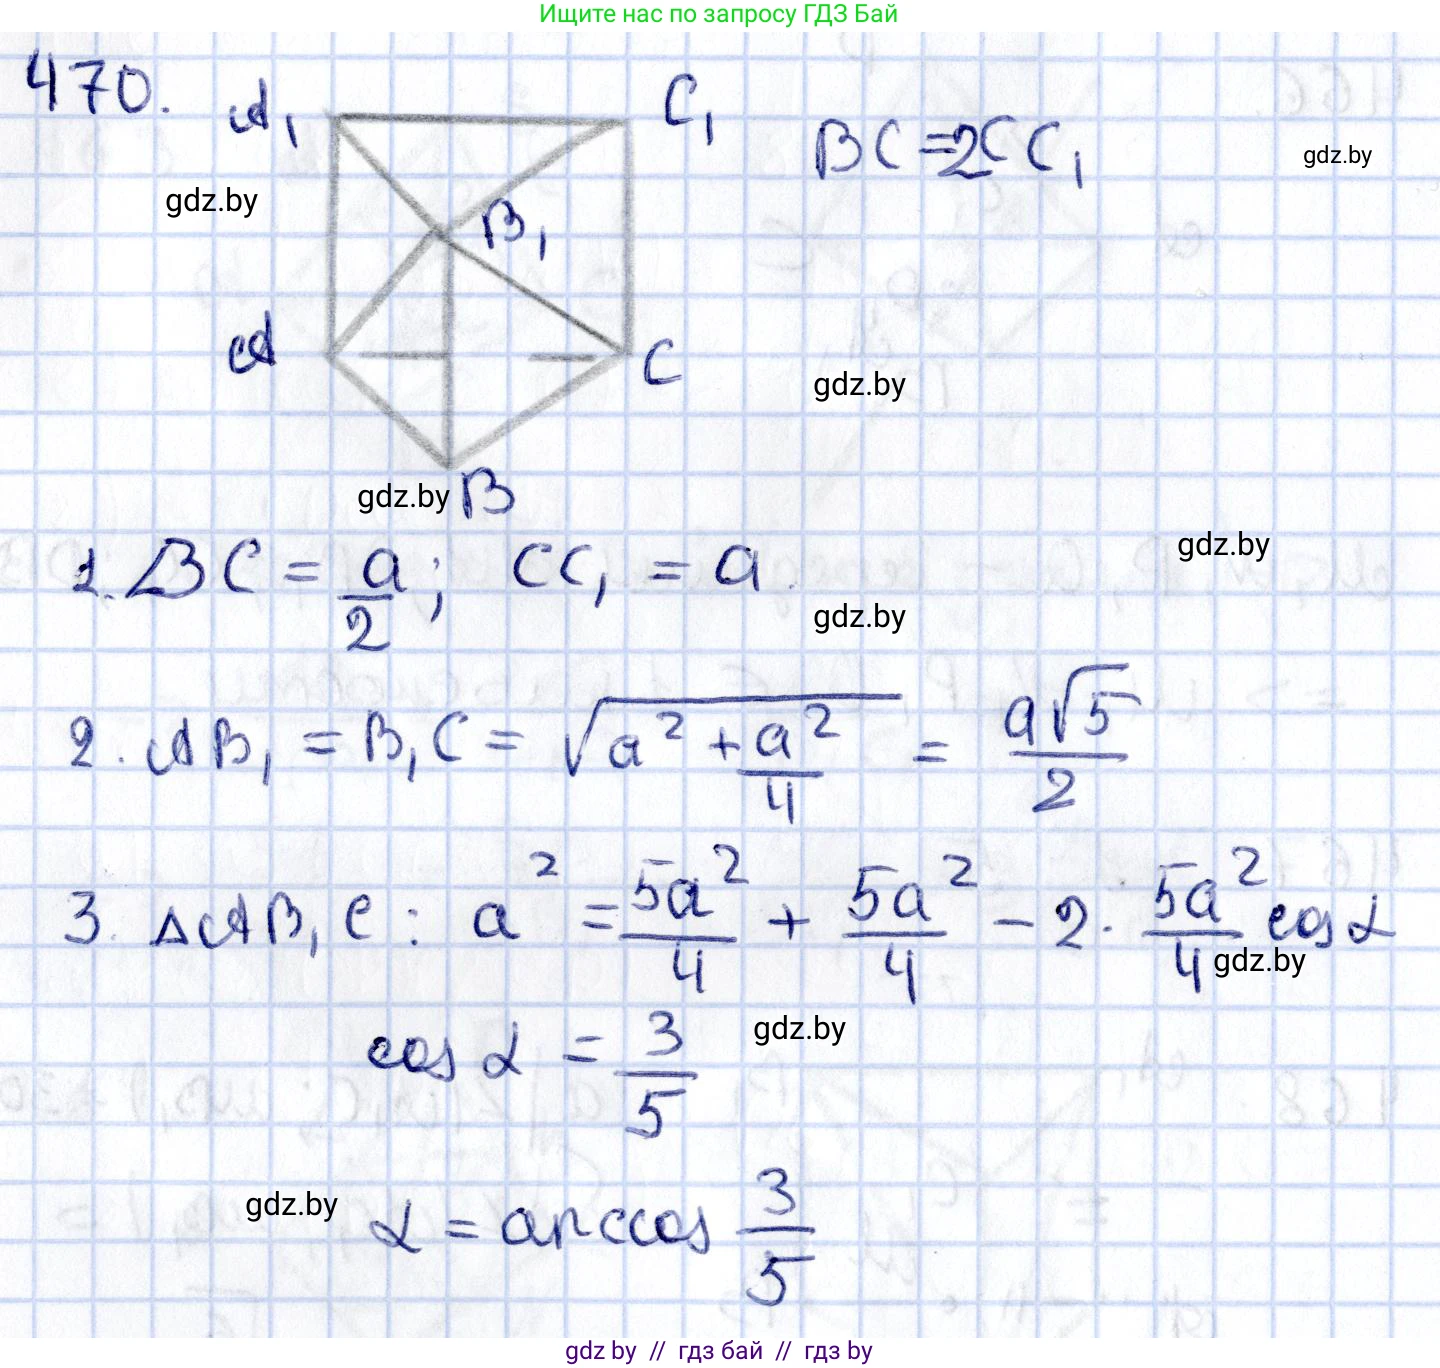 Ищите нас по запросу ГДЗ Бай
470.
A₁ C₁ BC = 2CC₁ gdz.by
gdz.by
B₁
A C
gdz.by
gdz.by B
gdz.by
1. BC = a/2; CC₁ = a.
gdz.by
2. AB₁ = B₁C = √(a² + a²/4) = a√5/2
3. △AB₁C: a² = 5a²/4 + 5a²/4 − 2 · 5a²/4 cos α
gdz.by
cos α = 3/5
gdz.by
gdz.by α = arccos 3/5
gdz by // гдз бай // гдз by